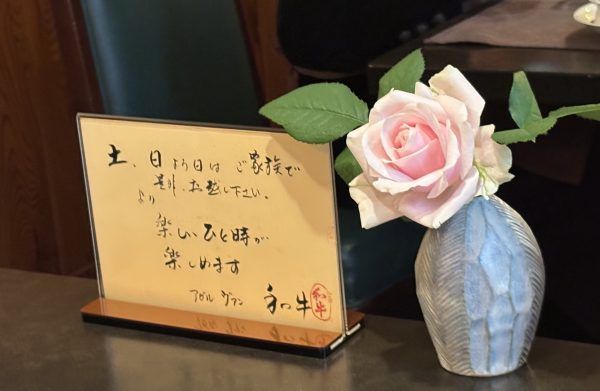 土、日より日はご家族で
是非、お越し下さい。
より
楽しいひと時が
楽しめます
アガル ヴァン 和牛
和牛